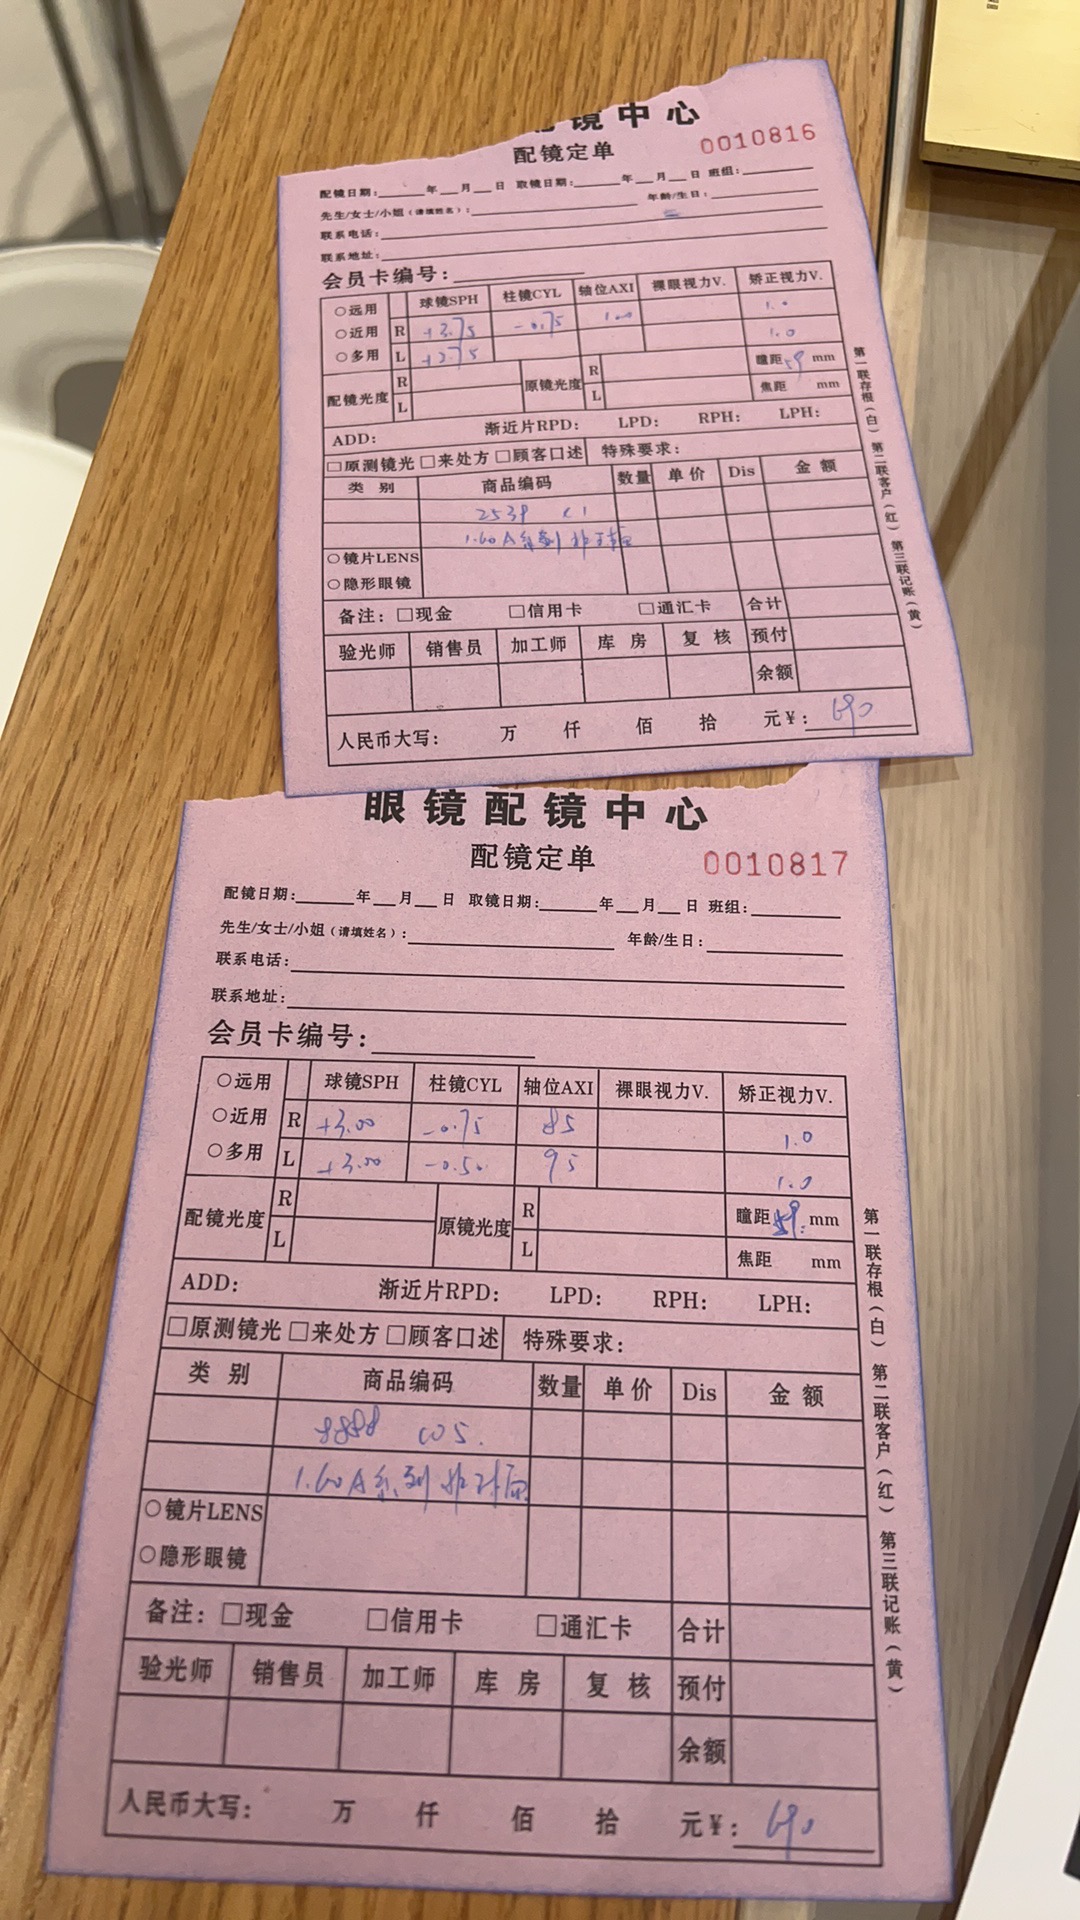 镜中心
配镜定单 0010816
配镜日期:______年__月__日 取镜日期:______年__月__日 班组:______
先生/女士/小姐(请填姓名): 年龄/生日:
联系电话:
联系地址:
会员卡编号:
○远用 球镜SPH 柱镜CYL 轴位AXI 裸眼视力V. 矫正视力V.
○近用 R +3.75 -0.75 100 1.0
○多用 L +2.75 1.0
配镜光度 R 原镜光度 R 瞳距59 mm
L L 焦距 mm
ADD: 渐近片RPD: LPD: RPH: LPH:
□原测镜光 □来处方 □顾客口述 特殊要求:
类 别 商品编码 数量 单价 Dis 金 额
2539 C1
1.60A系列非球面
○镜片LENS
○隐形眼镜
备注: □现金 □信用卡 □通汇卡 合计
验光师 销售员 加工师 库 房 复 核 预付
余额
人民币大写: 万 仟 佰 拾 元¥: 690
第一联存根(白) 第二联客户(红) 第三联记账(黄)
眼镜配镜中心
配镜定单 0010817
配镜日期:______年__月__日 取镜日期:______年__月__日 班组:______
先生/女士/小姐(请填姓名): 年龄/生日:
联系电话:
联系地址:
会员卡编号:
○远用 球镜SPH 柱镜CYL 轴位AXI 裸眼视力V. 矫正视力V.
○近用 R +3.00 -0.75 85 1.0
○多用 L +3.00 -0.50 95 1.0
配镜光度 R 原镜光度 R 瞳距59 mm
L L 焦距 mm
ADD: 渐近片RPD: LPD: RPH: LPH:
□原测镜光 □来处方 □顾客口述 特殊要求:
类 别 商品编码 数量 单价 Dis 金 额
8888 C05.
1.60A系列非球面
○镜片LENS
○隐形眼镜
备注: □现金 □信用卡 □通汇卡 合计
验光师 销售员 加工师 库 房 复 核 预付
余额
人民币大写: 万 仟 佰 拾 元¥: 690
第一联存根(白) 第二联客户(红) 第三联记账(黄)